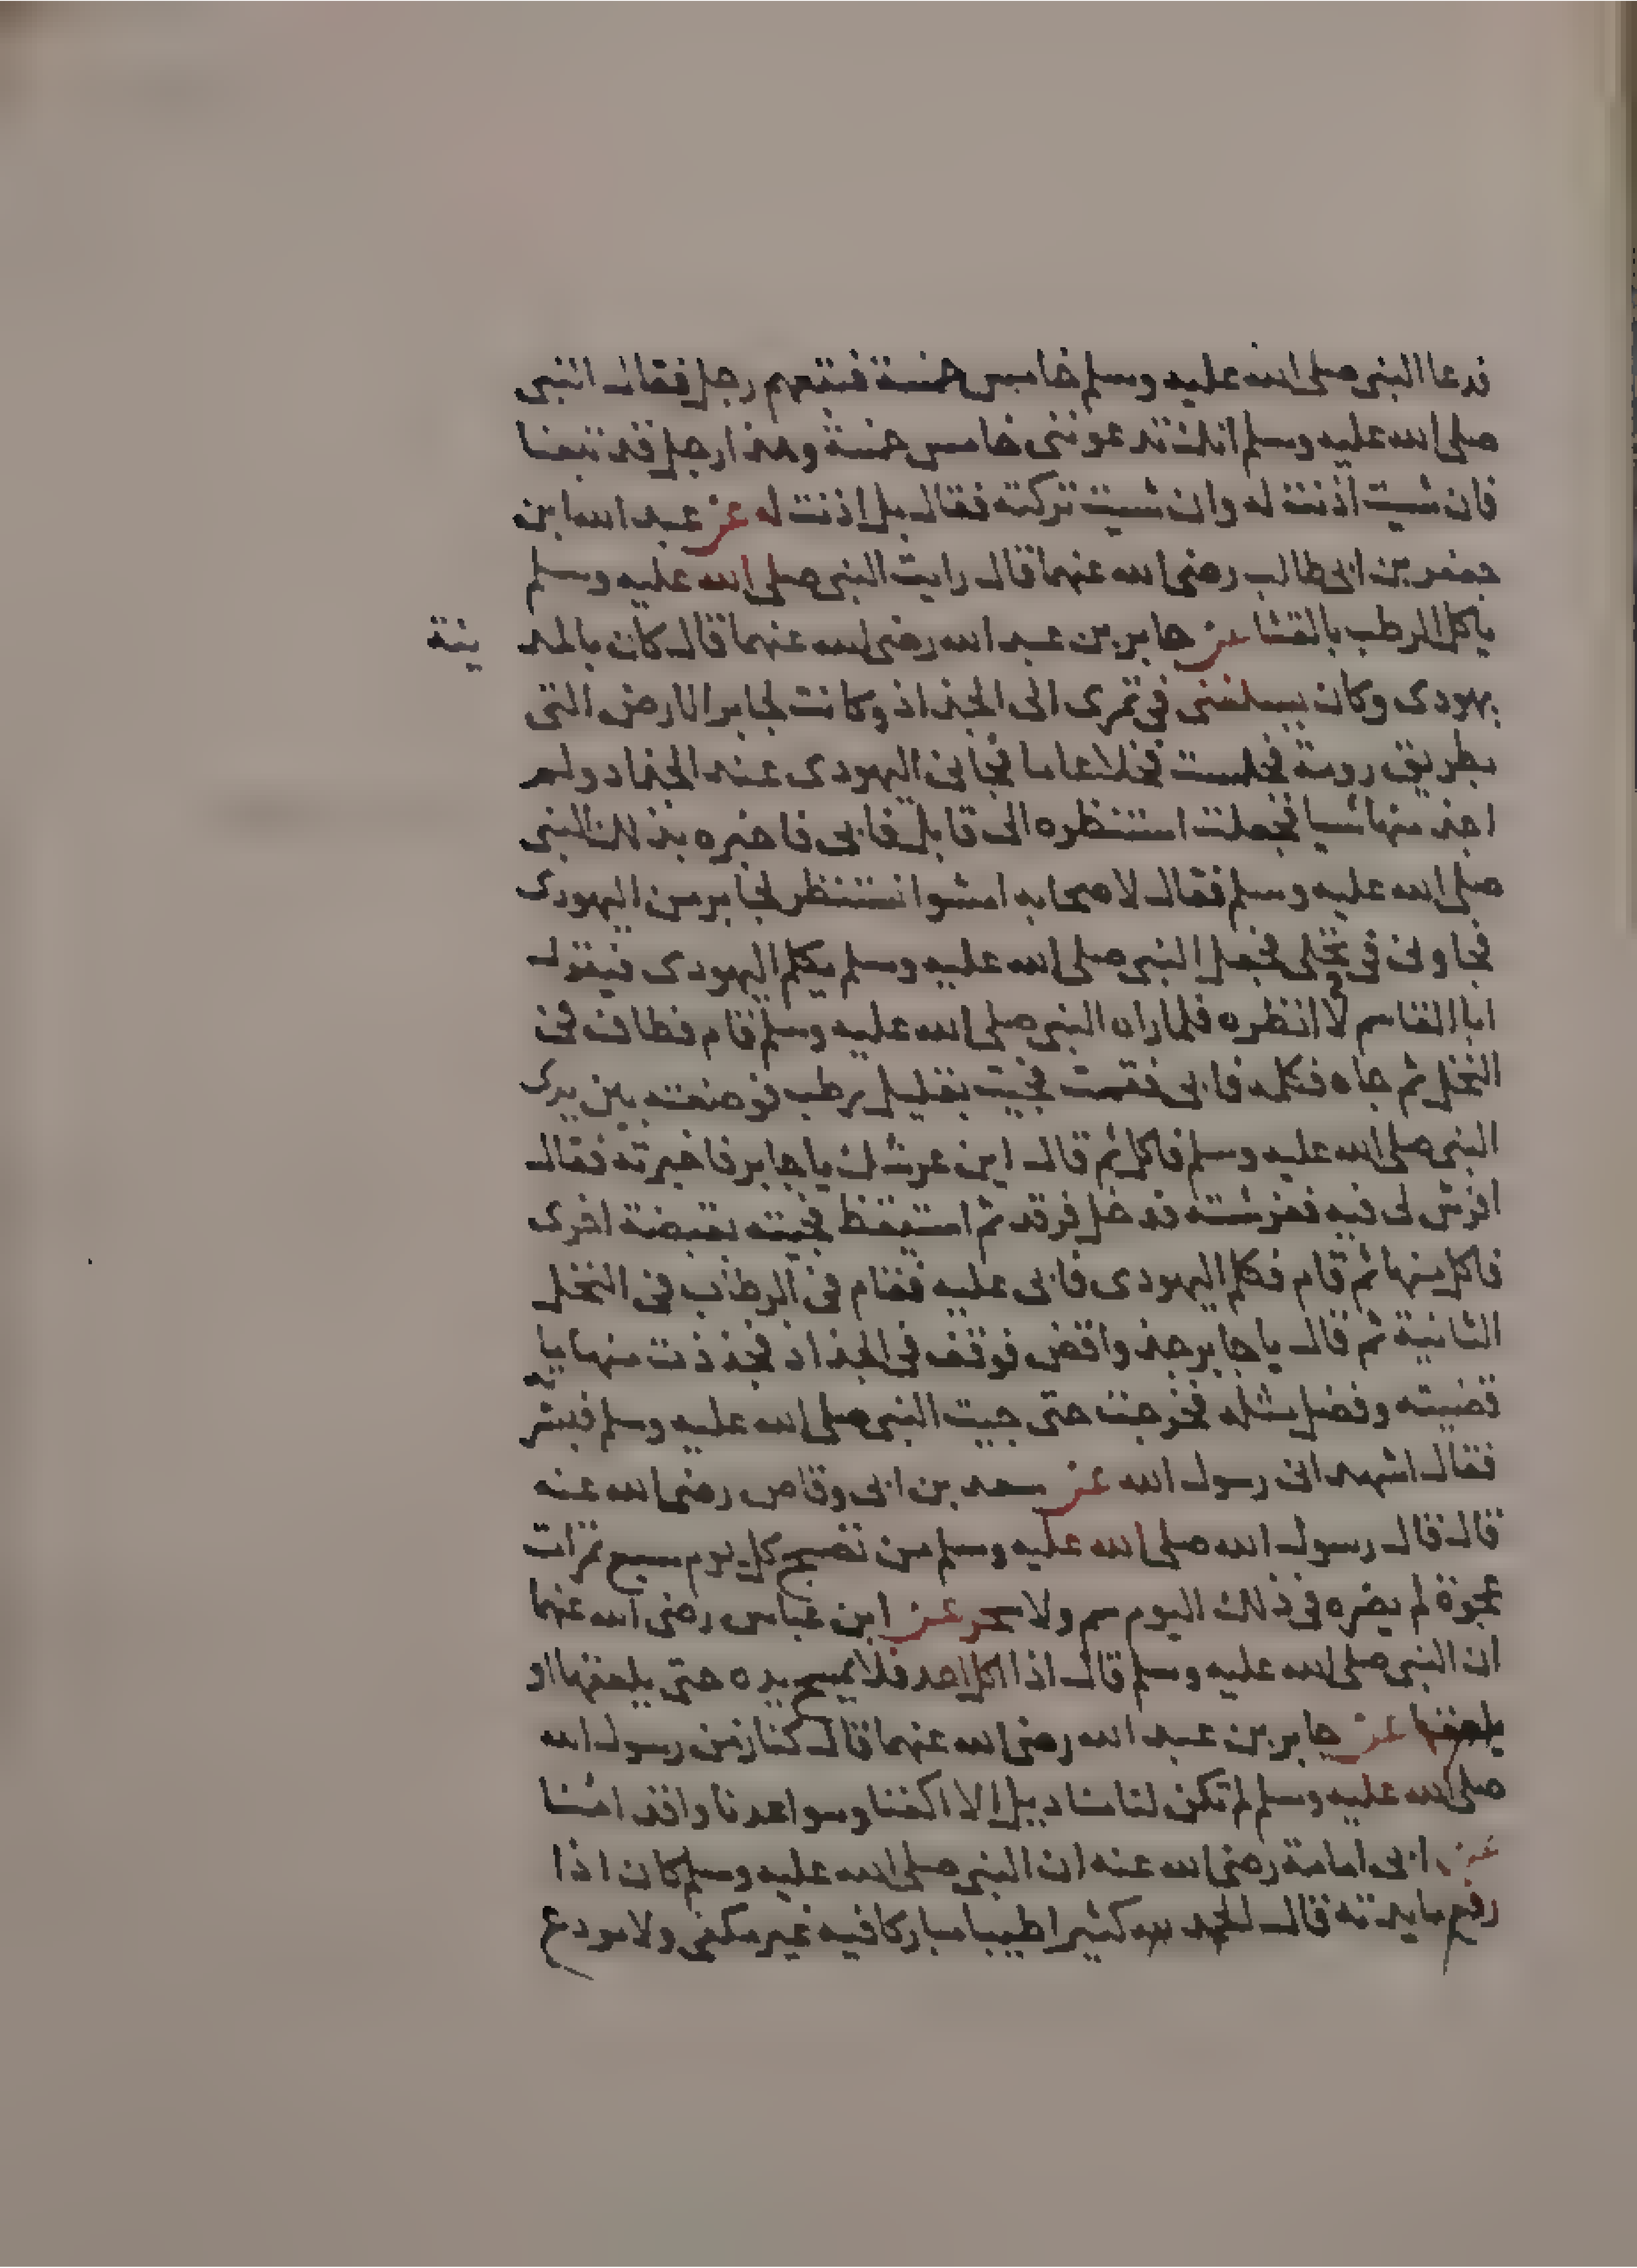 فدعا النبى صلى الله عليه وسلم خامس خمسة فتبعهم رجل فقال النبى
صلى الله عليه وسلم انك تدعوننى خامس خمسة وهذا رجل قد تبعنا
فان شيت اذنت له وان شيت تركته فقال بل اذنت له عن عبد الله ابن
جعفر بن ابى طالب رضى الله عنهما قال رايت النبى صلى الله عليه وسلم
ياكل الرطب بالقثا عن جابر بن عبد الله رضى الله عنهما قال كان بالمد ينة
يهودى وكان يسلفنى فى تمرى الى الجذاذ وكانت لجابر الارض التى
بطريق رومة فجلست نخلا عاما فجانى اليهودى عند الجذاذ ولم
اجذ منها شيا فجعلت استنظره الى قابل فابى فاخبره بذلك النبى
صلى الله عليه وسلم فقال لاصحابه امشوا نستنظر لجابر من اليهودى
فجاونى فى نخلى فجعل النبى صلى الله عليه وسلم يكلم اليهودى فيقول
ابا القاسم لا انظره فلما راه النبى صلى الله عليه وسلم قام فطاف فى
النخل ثم جاه فكلمه فابى فقمت فجيت بقليل رطب فوضعته بين يدى
النبى صلى الله عليه وسلم فاكل ثم قال اين عرشك يا جابر فاخبرته فقال
افرش لى فيه ففرشته فدخل فرقد ثم استيقظ فجيته بقبضة اخرى
فاكل منها ثم قام فكلم اليهودى فابى عليه فقام فى الرطاب فى النخل
الثانية ثم قال يا جابر جذ واقض فوقف فى الجذاذ فجذذت منها ما
قضيته وفضل مثله فخرجت حتى جيت النبى صلى الله عليه وسلم فبشرته
فقال اشهد انى رسول الله عن سعد بن ابى وقاص رضى الله عنه
قال قال رسول الله صلى الله عليه وسلم من تصبح كل يوم سبع تمرات
عجوة لم يضره فى ذلك اليوم سم ولا سحر عن ابن عباس رضى الله عنهما
ان النبى صلى الله عليه وسلم قال اذا اكل احد فلا يمسح يده حتى يلعقها او
يلعقها عن جابر بن عبد الله رضى الله عنهما قال كنا زمن رسول الله
صلى الله عليه وسلم لم تكن لنا مناديل الا اكفنا وسواعدنا واقدامنا
عن ابى امامة رضى الله عنه ان النبى صلى الله عليه وسلم كان اذا
رفع مايدته قال الحمد لله كثيرا طيبا مباركا فيه غير مكفى ولا مودع